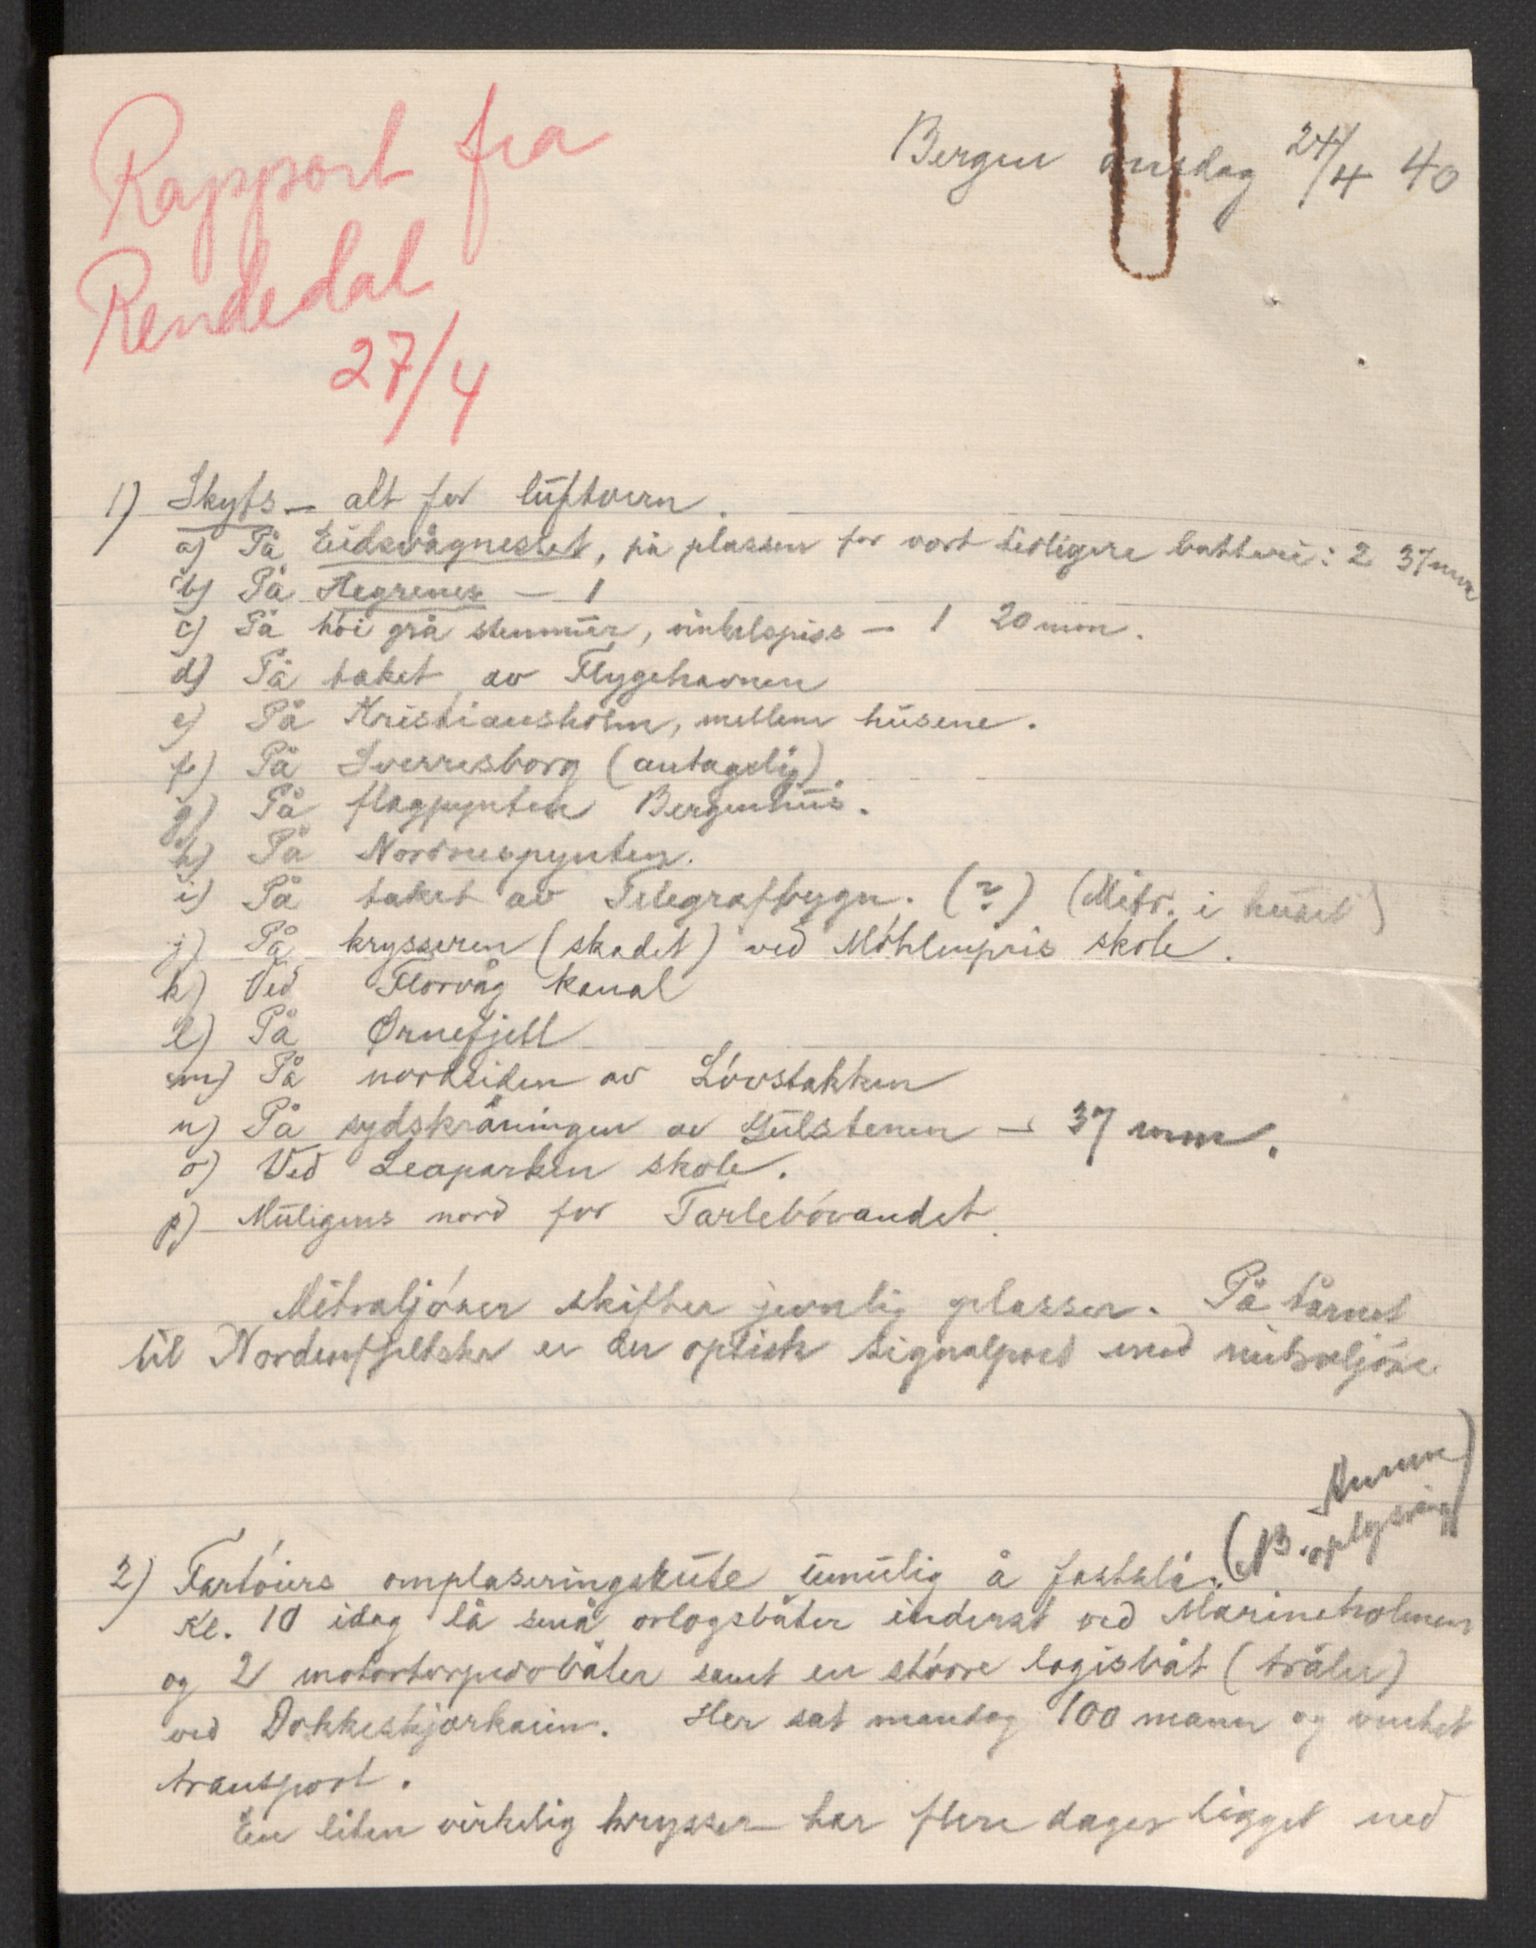 Rapport fra
Rendedal
27/4
Bergen onsdag 24/4 40
1) Skyts – alt for luftvern.
a) På Eidsvågnesset, på plassen for vort tidligere batteri: 2 37mm
b) På Hegrenes – 1
c) På hói grå stenmur, vinkelspiss – 1 20 mm.
d) På taket av Flygehavnen
e) På Kristiansholm, mellem húsene.
f) På Sverresborg (antagelig)
g) På flagpynten Bergenhus.
h) På Nordnespynten.
i) På taket av Telegrafbygn. (?) (Mitr. i huset)
j) På krysseren (skadet) ved Móhlenpris skole.
k) Ved Florvåg kanal
l) På Ørnefjell
m) På nordsiden av Lóvstakken
n) På sydskråningen av Gulstenen – 37 mm.
o) Ved Leaparken skole.
p) Muligens nord for Tarlebóvandet.
Mitraljóser skifter jevnlig plasser. På tårnet
til Nordenfjeltske er der optisk signalpost med mitraljóse
(B. oplysning)
2) Fartóiers omplaseringsrute umulig å fastslå.
Kl. 10 idag lå små orlogsbåter inderst ved Marineholmen
og 2 motortorpedobåter samt en stórre logisbåt (tråler)
ved Dokkeskjærkaien. Her sat mandag 100 mann og ventet
transport.
En liten virkelig krysser har flere dager ligget ved